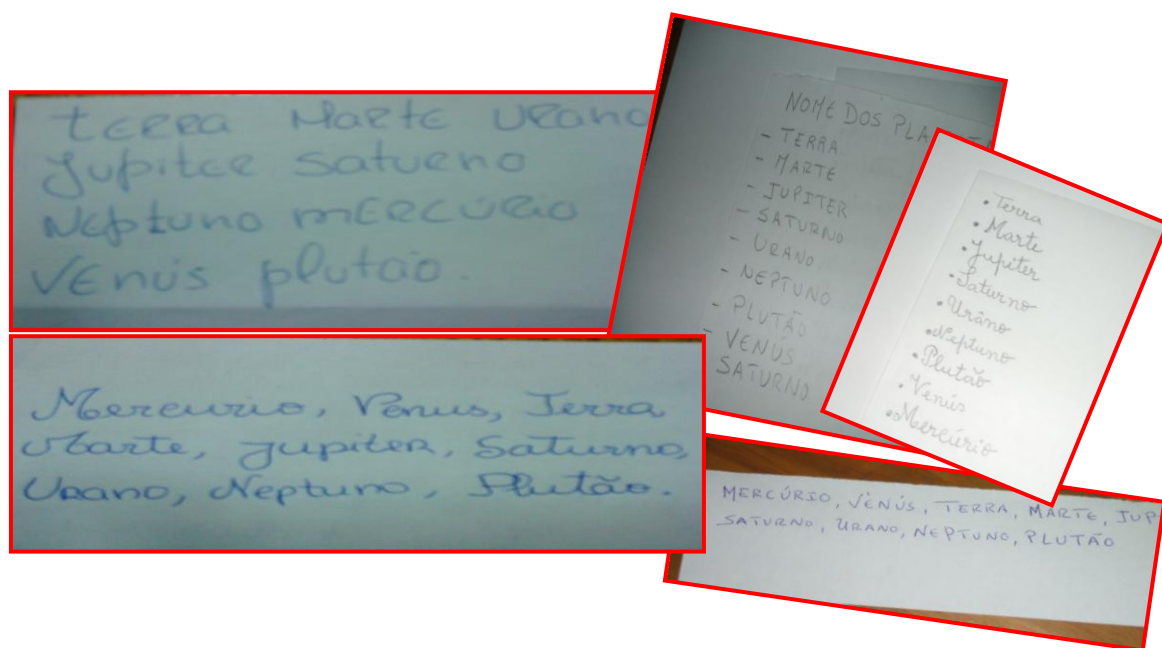 terra Marte Urano
Jupiter Saturno
Neptuno mercúrio
Venús plutão.
Mercurio, Vênus, Terra
Marte, Jupiter, Saturno,
Urano, Neptuno, Plutão.
NOME DOS
- TERRA
- MARTE
- JUPITER
- SATURNO
- URANO
- NEPTUNO
- PLUTÃO
- VENÚS
SATURNO
• Terra
• Marte
• Jupiter
• Saturno
• Urâno
• Neptuno
• Plutão
• Venús
• Mercúrio
MERCÚRIO, VÊNÚS, TERRA, MARTE, JUP
SATURNO, URANO, NEPTUNO, PLUTÃO